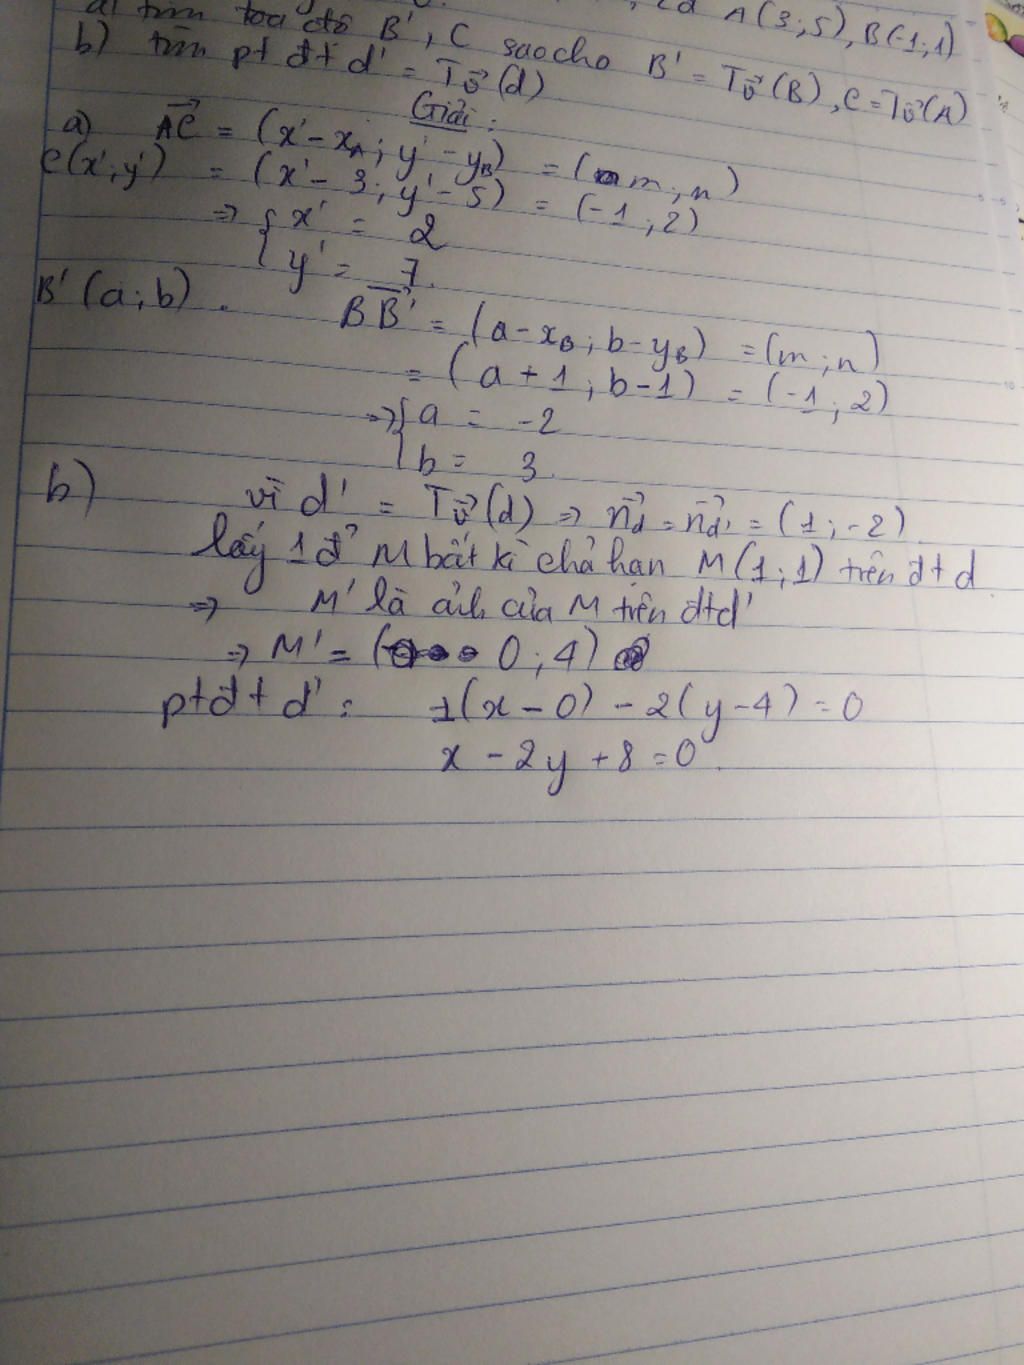 , 2đ A(3;5), B(-1;1)
a) tìm toạ độ B', C sao cho B' = Tv⃗(B), C = Tv⃗(A)
b) tìm pt đt d' = Tv⃗(d)
Giải:
a) AC⃗ = (x' - xA; y' - yB) = (m; n)
C(x'; y') = (x' - 3; y' - 5) = (-1; 2)
⇒ { x' = 2
{ y' = 7.
B'(a; b). BB'⃗ = (a - xB; b - yB) = (m; n)
= (a + 1; b - 1) = (-1; 2)
⇒ { a = -2
{ b = 3.
b) vì d' = Tv⃗(d) ⇒ nd⃗ = nd'⃗ = (1; -2).
lấy 1 đ' M bất kì chả hạn M(1; 1) trên đt d.
⇒ M' là ảnh của M trên đt d'
⇒ M' = (0; 4)
pt đt d': 1(x - 0) - 2(y - 4) = 0
x - 2y + 8 = 0.